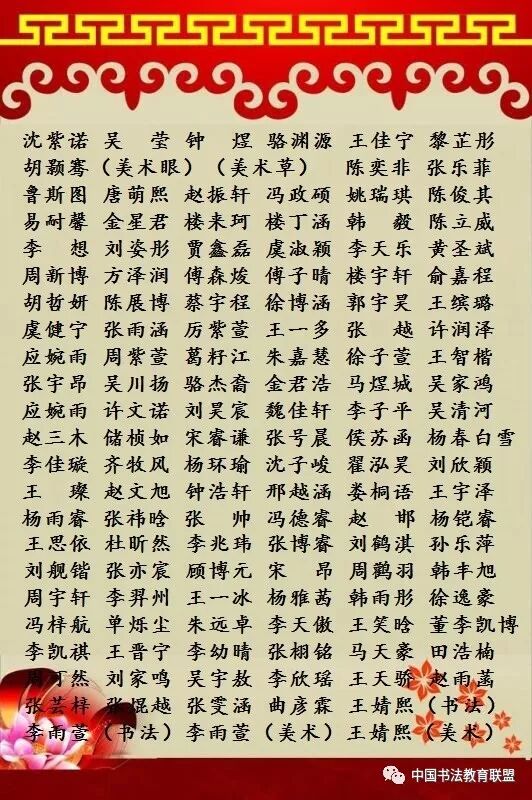 沈紫诺 吴 莹 钟 煜 骆渊源 王佳宁 黎芷彤
胡颢骞（美术眼）（美术草） 陈奕非 张乐菲
鲁斯图 唐萌熙 赵振轩 冯政硕 姚瑞琪 陈俊其
易耐馨 金星君 楼来珂 楼丁涵 韩 毅 陈立威
李 想 刘姿彤 贾鑫磊 虞淑颖 李天乐 黄圣斌
周新博 方泽润 傅森焌 傅子晴 楼宇轩 俞嘉程
胡哲妍 陈展博 蔡宇程 徐博涵 郭宇昊 王缤璐
虞健宁 张雨涵 厉紫萱 王一多 张 越 许润泽
应婉雨 周紫萱 葛籽江 朱嘉慧 徐子萱 王智楷
张宇昂 吴川扬 骆杰裔 金君浩 马煜城 吴家鸿
应婉雨 许文诺 刘昊宸 魏佳轩 李子平 吴清河
赵三木 储桢如 宋睿谦 张号晨 侯苏函 杨春白雪
李佳璇 齐牧风 杨环瑜 沈子峻 翟泓昊 刘欣颖
王 璨 赵文旭 钟浩轩 邢越涵 娄桐语 王宇泽
杨雨睿 张祎晗 张 帅 冯德睿 赵 邯 杨铠睿
王思依 杜昕然 李兆玮 张博睿 刘鹤淇 孙乐萍
刘舰锴 张亦宸 顾博元 宋 昂 周鹳羽 韩丰旭
周宇轩 李羿州 王一冰 杨雅茜 韩雨彤 徐逸豪
冯梓航 单烁尘 朱远卓 李天傲 王笑晗 董李凯博
李凯祺 王晋宁 李幼晴 张栩铭 马天豪 田浩楠
周可然 刘家鸣 吴宇敖 李欣瑶 王天骄 赵雨菡
张芸梓 张焜越 张雯涵 曲彦霖 王婧熙（书法）
李雨萱（书法）李雨萱（美术）王婧熙（美术）
中国书法教育联盟